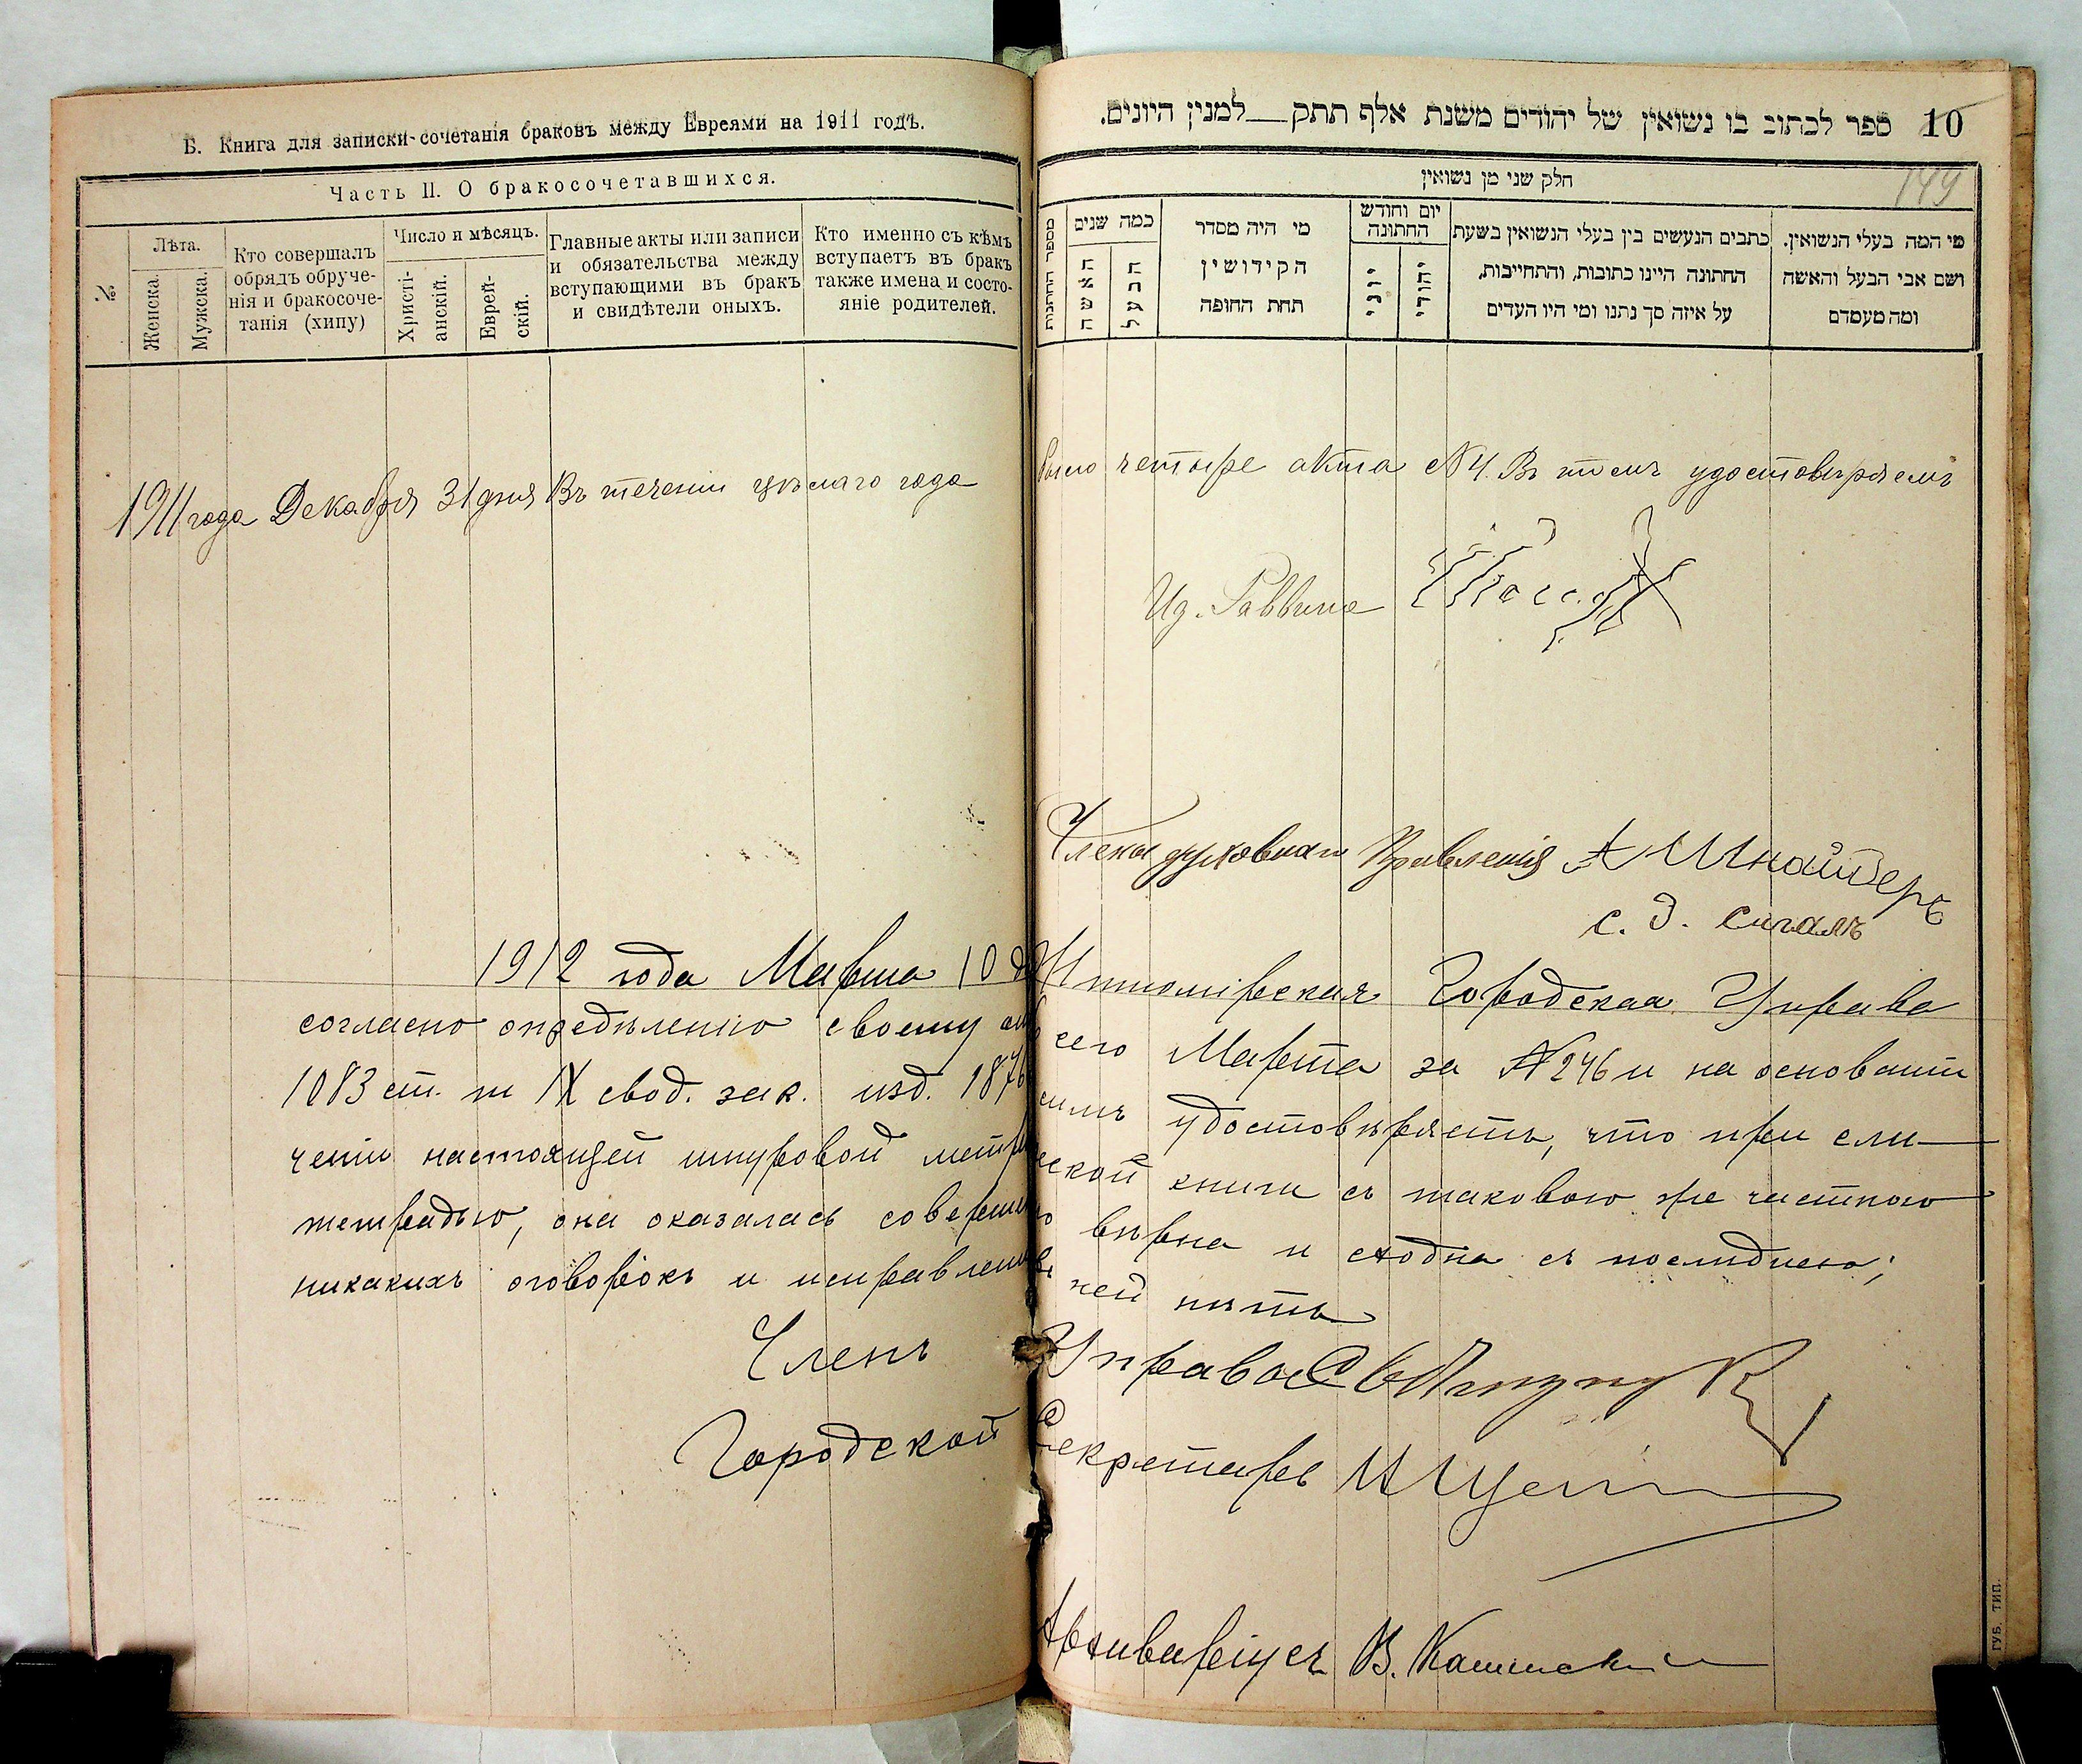 Б. Книга для записки сочетанія браковъ между Евреями на 1911 годъ.
Часть II. О бракосочетавшихся.
№
Лѣта.
Женска.
Мужска.
Кто совершалъ
обрядъ обруче-
нія и бракосоче-
танія (хипу)
Число и мѣсяцъ.
Христі-
анскій.
Еврей-
скій.
Главные акты или записи
и обязательства между
вступающими въ бракъ
и свидѣтели оныхъ.
Кто именно съ кѣмъ
вступаетъ въ бракъ
также имена и состо-
яніе родителей.
10 ספר לכתוב בו נשואין של יהודים משנת אלף תתק__למנין היונים.
149
חלק שני מן נשואין
מספר החתונות
כמה שנים
האשה
הבעל
מי היה מסדר
הקידושין
תחת החופה
יום וחודש
החתונה
יוני
יהודי
כתבים הנעשים בין בעלי הנשואין בשעת
החתונה היינו כתובות, והתחייבות,
על איזה סך נתנו ומי היו העדים
מי המה בעלי הנשואין.
ושם אבי הבעל והאשה
ומה מעמדם
1911 года Декабря 31 дня Въ теченіи цѣлаго года было четыре акта №4. Въ томъ удостовѣряемъ
Ид. Раввина
Члены духовнаго Правленія А Шнайдеръ
С. Э. Сигалъ
1912 года Марта 10 д Житомірская Городская Управа
согласно опредѣленію своему сего Марта за №246 и на основаніи
1083 ст. т IX свод. зак. изд. 1876 симъ удостовѣряетъ, что при сли-
ченіи настоящей шнуровой метрической книги съ таковою же чистою
тетрадью, она оказалась совершенно вѣрна и сходна съ послѣднею;
никакихъ оговорокъ и исправленій въ ней нѣтъ
Членъ Управы
Городской Секретарь
Архиваріусъ В.
ГУБ. ТИП.